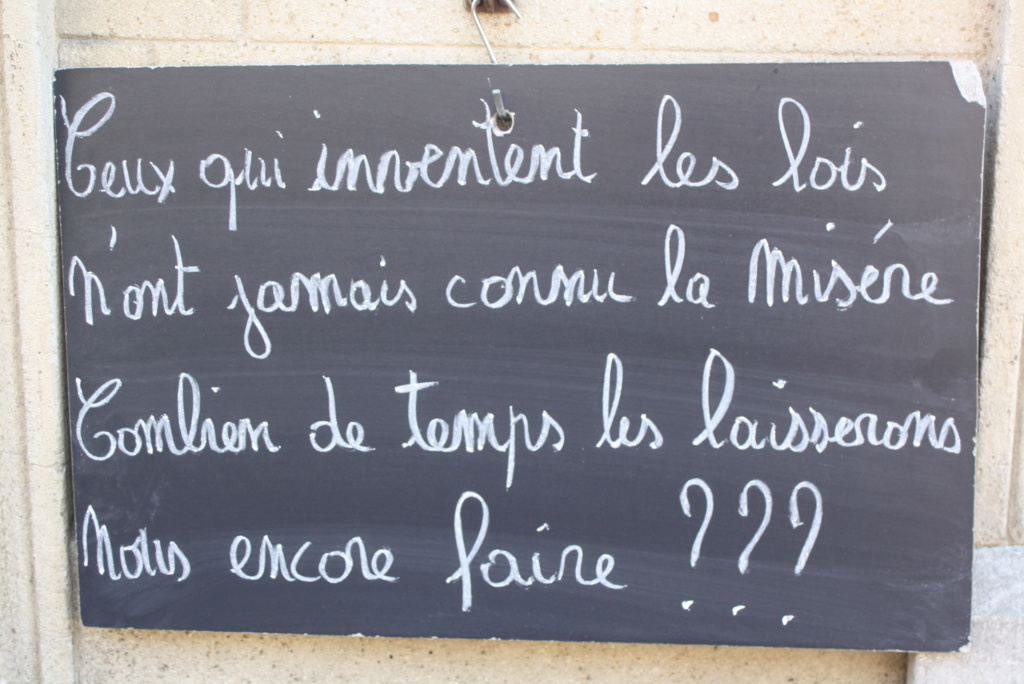 Ceux qui inventent les lois
N'ont jamais connu la Misére
Combien de temps les laisserons
Nous encore faire ???